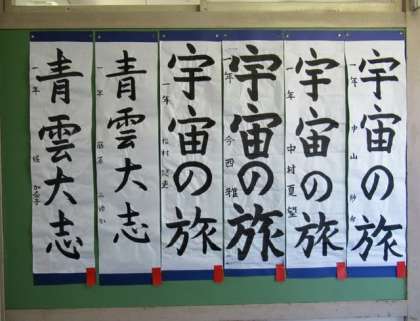 宇宙の旅
一年 中山
宇宙の旅
一年 中村夏望
宇宙の旅
一年 今西雅
宇宙の旅
一年 松村
青雲大志
一年
青雲大志
一年